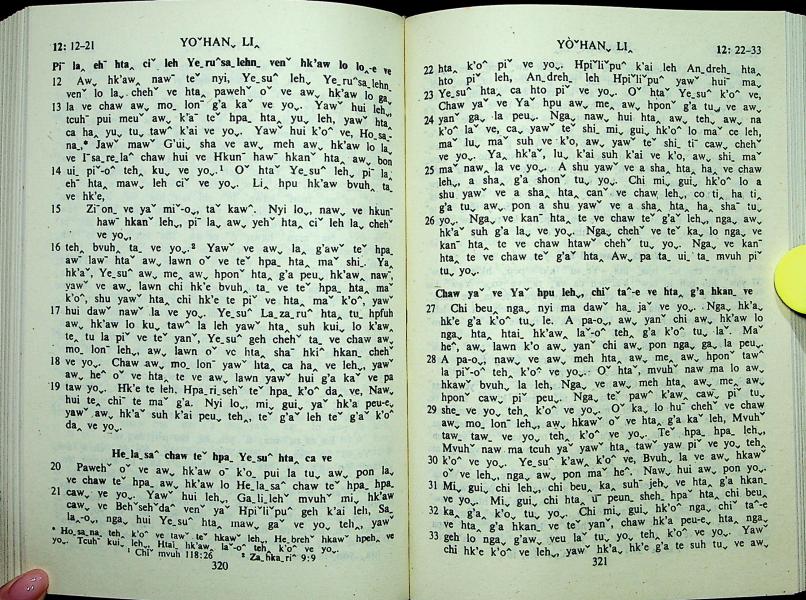 12: 12–21
YOˇHANˬ LIꞈ
Piˉ laꞈ ehˉ htaꞈ ciˇ leh Yeˍruˆsaˍlehnˬ venˇ hk'aw lo loꞈ-e ve
12 Awˬ hk'awꞈ nawˉ teˇ nyi, Yeˍsuˆ leh, Yeˍruˆsaˍlehnˬ
venˇ lo laˬ chehˇ ve htaˬ pawehˇ oˇ ve awˬ hk'aw lo gaˬ
13 la ve chaw awˬ moˬ lonˉ g'a kaˇ ve yoˬ. Yawˇ hui lehˬ,
tcuhˉ pui meuˇ awˬ k'aˉ teˇ hpaˍ htaꞈ yuˬ leh, yawˇ htaꞈ
ca haꞈ yuˬ tuˬ tawˆ k'ai ve yoˬ. Yawˇ hui k'oˆ ve, Hoˍsaˍ-
naˍ,* Jawˇ mawˇ G'uiˬ sha ve awˬ meh awˬ hk'aw lo laˬ
ve Iˉsaˍreˍlaˆ chaw hui ve Hkunˉ hawˇ hkanˇ htaꞈ awˬ bon
14 uiˍ piˇ-oˆ tehꞈ kuˬ ve yoˬ.¹ Oˇ htaˇ Yeˍsuˆ lehˬ, piˉ laꞈ
ehˉ htaꞈ mawˬ leh ciˇ ve yoˬ. Liꞈ hpu hk'aw bvuhˬ taˍ
ve hk'e,
15 Ziˉonˍ ve yaˇ miˇ-oˬ, taˇ kawˆ. Nyi loˬ, nawˬ ve hkunˉ
hawˇ hkanˇ lehˬ, piˉ la aw yehˇ htaꞈ ciˇ leh laˬ chehˇ
ve yoˬ,
16 tehꞈ bvuhˬ taˍ ve yoˬ.² Yawˇ ve awˬ laˬ g'awˇ teˇ hpaˍ
awˉ lawˉ htaˇ awˬ lawn oˇ ve teˇ hpaˍ htaꞈ maˇ shiˍ. Yaꞈ
hk'aˇ, Yeˍsuˆ awˬ meꞈ awˬ hponˇ htaꞈ g'a peuˬ hk'aw nawˬ,
yawˇ ve awˬ lawn chi hk'e bvuhˬ taˍ ve teˇ hpaˍ htaꞈ maˇ
k'oˆ, shu yawˇ htaꞈ chi hk'e te piˇ ve htaꞈ maˇ k'oˆ, yawˇ
17 hui dawˇ nawˇ la ve yoˬ. Yeˍsuˆ Laˍzaˍruˆ htaꞈ tuˍ hpfuh
awˬ hk'aw lo kuˬ tawˆ la leh yawˇ htaꞈ suh kui lo k'awꞈ
te tu la pi ve teˇ yanˇ, Yeˍsuˆ geh chehˇ taˍ ve chaw awˬ
moˬ lonˉ lehˬ, awˬ lawn oˇ ve htaꞈ shaˉ hkiˆ hkanˬ chehˇ
18 ve yoˬ. Chaw awˬ moˬ lonˉ yawˇ htaꞈ ca haꞈ ve lehˬ, yawˇ
awˬ heˆ oˇ ve htaꞈ te ve awˬ lawn yawˇ hui g'a kaˇ ve pa
19 taw yoˬ. Hk'e te leh, Hpaˍriˍsehˇ teˇ hpaˍ k'oˆ daꞈ ve, Nawˬ
hui teꞈ chiˇ te maˇ g'a. Nyi loˬ, miˬ guiˬ yaˇ hk'a peu-e,
yawˇ awˬ hk'aˇ suh k'ai peuˬ tehꞈ, teˇ g'aˇ leh teˇ g'aˇ k'oˆ
daꞈ ve yoˬ.
Heˍlaˍsaˆ chaw teˇ hpaˍ Yeˍsuˆ htaꞈ ca ve
20 Pawehˇ oˇ ve awˬ hk'aw oˇ k'oˍ pui la tuˬ awˬ pon laˬ
ve chaw teˇ hpaˍ awˬ hk'aw lo Heˍlaˍsaˆ chaw teˇ hpaˍ hpaˍ
21 cawˬ ve yoˬ. Yawˇ hui lehˬ, Gaˍliˍlehˇ mvuhˇ miˬ hk'aw
cawˬ ve Behˇsehˇdaˆ venˇ yaˇ Hpiˇliˇpuˇ geh k'ai leh, Saˍ
laˍ-oˬ, ngaˬ hui Yeˍsuˆ htaꞈ mawˬ gaˇ ve yoˬ tehꞈ, yawˇ
* Hoˍsaˍnaˍ tehꞈ k'oˆ ve tawˇ teˇ hkawˇ lehˬ, Heˍbrehˇ hkawˇ hpehꞈ ve
yoˬ. Tcuhˉ kuiˬ lehˬ, Htaiꞈ hk'awꞈ laˇ-oˆ tehꞈ k'oˆ ve yoˬ.
¹ Chiˆ mvuh 118:26 ² Zaˍhkaˍriˆ 9:9
320
YÒˇHANˬ LIꞈ
12: 22–33
22 htaꞈ k'oˆ piˇ ve yoˬ. Hpiˇliˇpuˇ k'ai leh Anˍdrehˍ htaꞈ
hto piˇ leh, Anˍdreh leh Hpiˇliˇpuˇ yawˇ huiˉ maˬ
23 Yeˍsuˆ htaꞈ ca hto piˇ ve yoˬ. Oˇ htaˇ Yeˍsuˆ k'oˆ ve,
Chaw yaˇ ve Yaˇ hpu awˬ meꞈ awˬ hpon g'a tuˬ ve awˬ
24 yanˇ gaˬ la peuˬ. Ngaˬ nawˬ hui htaꞈ awˬ tehꞈ awˬ na
k'oˆ laˇ ve, caˬ yawˇ teˇ shiˍ miˬ gui, hk'oˆ lo maˇ ce leh,
maˇ luˬ maˇ suh ve k'o, awˬ yawˇ teˇ shiˍ tiˉ cawˬ chehˇ
ve yoˬ. Yaꞈ hk'aˇ, luˬ k'ai suh k'ai ve k'o, awˬ shiˍ maˇ
25 maˇ nawˬ la ve yoˬ. A shu yawˇ ve a sha htaꞈ haˬ ve chaw
lehˬ, a sha g'a shonˆ tuˬ yoˬ. Chi miˬ gui, hk'oˆ lo a
shu yawˇ ve a sha htaꞈ canˇ ve chaw lehˬ, coˍtiˍhaˍtiˍ
g'a tuˬ awˬ pon a shu yawˇ ve a sha htaꞈ haˍ shaˉ tuˬ
26 yoˬ. Ngaˬ ve kanˉ htaꞈ te ve chaw teˇ g'aˇ lehˬ, ngaˬ awˬ
hk'aˇ suh g'a laˬ ve yoˬ. Ngaˬ chehˇ ve teˇ kaˬ lo ngaˬ ve
kanˉ htaꞈ te ve chaw htawˇ chehˇ tuˬ yoˬ. Ngaˬ ve kanˉ
htaꞈ te ve chaw teˇ g'aˇ htaꞈ Awˬ pa taˍ uiˍ taˍ mvuh piˇ
tuˬ yoˬ.
Chaw yaˇ ve Yaˇ hpu lehˬ, chiˇ taˆ-e ve htaꞈ g'a hkanˍ ve
27 Chi beuˬ ngaˬ nyi ma dawˇ haˍ jaˇ ve yoˬ. Ngaˬ hk'aˬ
hk'e g'a k'oˆ tuˬ le. A pa-oˬ, awˬ yanˇ chi awˬ hk'aw lo
ngaˬ htaꞈ htaiꞈ hk'awꞈ laˇ-oˆ tehꞈ g'a k'oˆ tuˬ laˇ. Maˇ
heˆ, awˬ lawn k'o awˬ yanˇ chi awˬ pon ngaˬ gaˬ la peuˬ.
28 A pa-oˬ, nawˬ ve awˬ meh htaꞈ awˬ meꞈ awˬ hponˇ tawˆ
la piˇ-oˆ tehꞈ k'oˆ ve yoˬ. Oˇ htaˇ, mvuhˇ naw ma lo awˬ
hkawˇ bvuhˬ la leh, Ngaˬ ve awˬ meh htaꞈ awˬ meꞈ awˬ
hponˇ cawˬ piˇ peuˬ. Ngaˬ teˇ pawˆ k'awꞈ cawˬ piˇ tuˬ
29 sheˍ ve yoˬ tehꞈ k'oˆ ve yoˬ. Oˇ kaˬ lo huˉ chehˇ ve chaw
awˬ moˬ lonˉ lehˬ, awˬ hkawˇ oˇ ve htaꞈ g'a kaˇ leh, Mvuhˇ
tawˬ tawˬ ve yoˬ tehꞈ k'oˆ ve yoˬ. Teˇ hpaˍ hpaˍ lehˬ,
Mvuhˇ naw ma tcuh yaˇ yawˇ htaꞈ tawˇ yaw piˇ ve yoˬ tehꞈ
30 k'oˆ ve yoˬ. Yeˍsuˆ k'awꞈ k'oˆ ve, Bvuhˬ la ve awˬ hkawˇ
oˇ ve lehˬ, ngaˬ awˬ pon maˇ heˆ. Nawˬ hui awˬ pon yoˬ.
31 Miˬ guiˬ chi lehˬ, chi beuˬ kaˬ suhˉ jehˬ ve htaꞈ g'a hkanˍ
ve yoˬ. Miˬ guiˬ chi htaꞈ uˉ peunˍ shehˍ hpaˇ htaꞈ chi beuˬ
32 kaˬ g'aꞈ k'oˆ tuˬ yoˬ. Chi miˬ gui, hk'oˆ ngaˬ chiˇ taˆ-e
ve htaꞈ g'a hkanˍ ve teˇ yanˇ, chaw hk'a peu-e htaꞈ ngaˬ
33 geh lo ngaˬ g'awˬ veuˬ laˇ tuˬ yoˬ tehꞈ k'oˆ ve yoˬ. Yawˇ
chi hk'e k'oˆ ve lehˬ, yawˇ hk'aˬ hk'e g'a te suh tuˬ ve awˬ
321